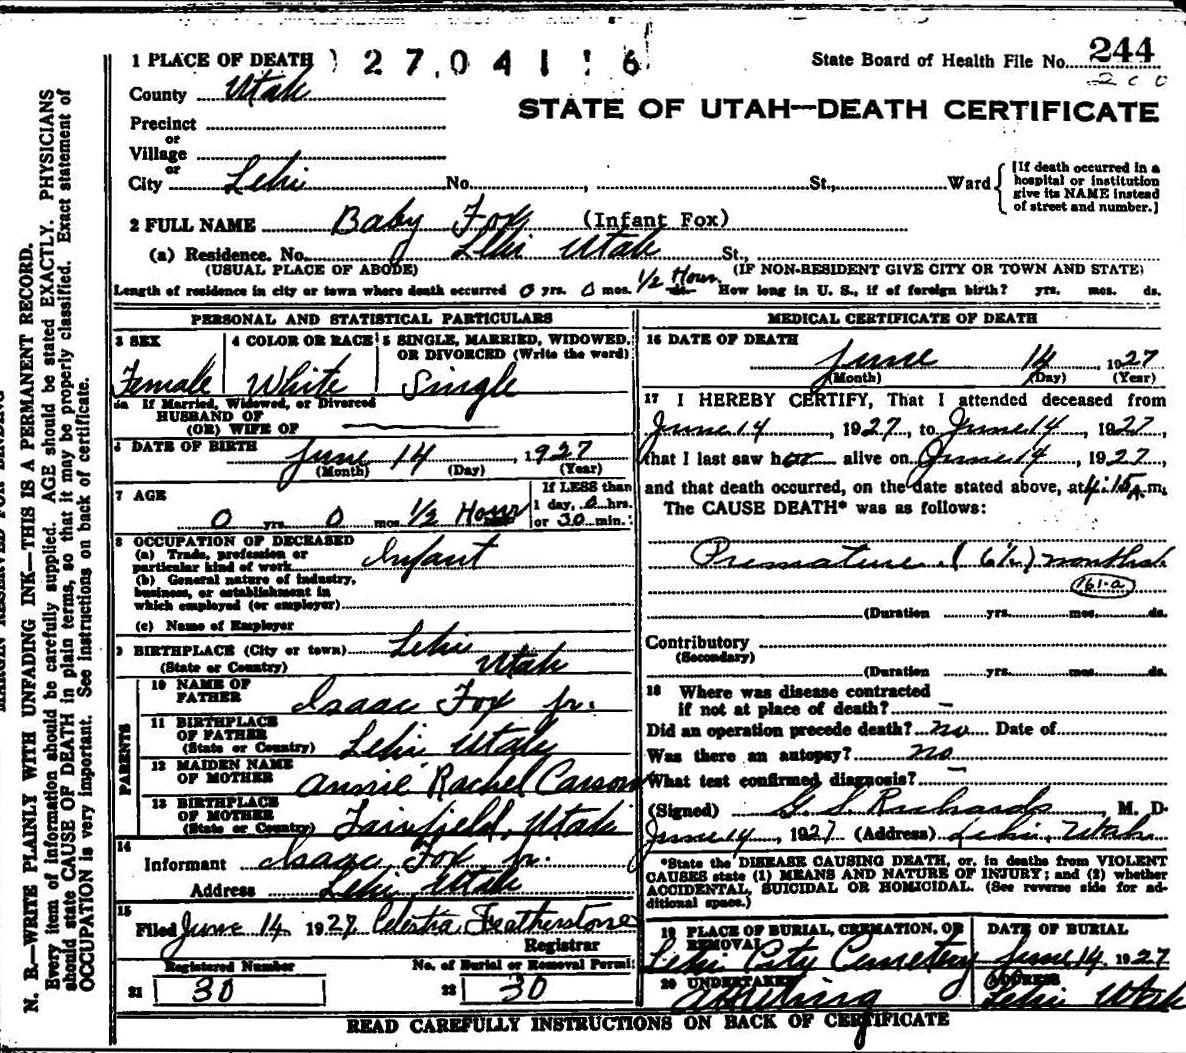 1 PLACE OF DEATH
State Board of Health File No. 244
County Utah
STATE OF UTAH—DEATH CERTIFICATE
Precinct
or
Village
or
City Lehi No. , St., Ward
[If death occurred in a hospital or institution give its NAME instead of street and number.]
2 FULL NAME Baby Fox (Infant Fox)
(a) Residence. No. Lehi Utah St.,
(USUAL PLACE OF ABODE) (IF NON-RESIDENT GIVE CITY OR TOWN AND STATE)
Length of residence in city or town where death occurred 0 yrs. 0 mos. 1/2 Hour ds. How long in U. S., if of foreign birth? yrs. mos. ds.
PERSONAL AND STATISTICAL PARTICULARS
3 SEX 4 COLOR OR RACE 5 SINGLE, MARRIED, WIDOWED, OR DIVORCED (Write the word)
Female White Single
5a If Married, Widowed, or Divorced
HUSBAND OF
(OR) WIFE OF
6 DATE OF BIRTH June 14, 1927
(Month) (Day) (Year)
7 AGE If LESS than
1 day, 0 hrs.
0 yrs. 0 mos. 1/2 Hour or 30 min.
8 OCCUPATION OF DECEASED
(a) Trade, profession or
particular kind of work Infant
(b) General nature of industry,
business, or establishment in
which employed (or employer)
(c) Name of Employer
9 BIRTHPLACE (City or town) Lehi
(State or Country) Utah
PARENTS
10 NAME OF
FATHER Isaac Fox Jr.
11 BIRTHPLACE
OF FATHER
(State or Country) Lehi Utah
12 MAIDEN NAME
OF MOTHER Annie Rachel Carson
13 BIRTHPLACE
OF MOTHER
(State or Country) Fairfield, Utah
14
Informant Isaac Fox Jr.
Address Lehi Utah
15
Filed June 14, 1927 Celestia Featherstone
Registrar
Registered Number No. of Burial or Removal Permit
21 30 22 30
MEDICAL CERTIFICATE OF DEATH
16 DATE OF DEATH
June 14 1927
(Month) (Day) (Year)
17 I HEREBY CERTIFY, That I attended deceased from
June 14, 1927, to June 14, 1927,
that I last saw her alive on June 14, 1927,
and that death occurred, on the date stated above, at 4:15 A.m.
The CAUSE DEATH* was as follows:
Premature. (6½) months.
161-a
(Duration yrs. mos. ds.
Contributory
(Secondary)
(Duration yrs. mos. ds.
18 Where was disease contracted
if not at place of death? –
Did an operation precede death? no Date of
Was there an autopsy? no
What test confirmed diagnosis? –
(Signed) G. S. Richards, M. D.
June 14, 1927 (Address) Lehi, Utah
*State the DISEASE CAUSING DEATH, or, in deaths from VIOLENT
CAUSES state (1) MEANS AND NATURE OF INJURY; and (2) whether
ACCIDENTAL, SUICIDAL OR HOMICIDAL. (See reverse side for ad-
ditional space.)
19 PLACE OF BURIAL, CREMATION, OR REMOVAL DATE OF BURIAL
Lehi City Cemetery June 14, 1927
20 UNDERTAKER ADDRESS
Lehi Utah
READ CAREFULLY INSTRUCTIONS ON BACK OF CERTIFICATE
N. B.—WRITE PLAINLY WITH UNFADING INK—THIS IS A PERMANENT RECORD.
Every item of information should be carefully supplied. AGE should be stated EXACTLY. PHYSICIANS
should state CAUSE OF DEATH in plain terms, so that it may be properly classified. Exact statement of
OCCUPATION is very important. See instructions on back of certificate.